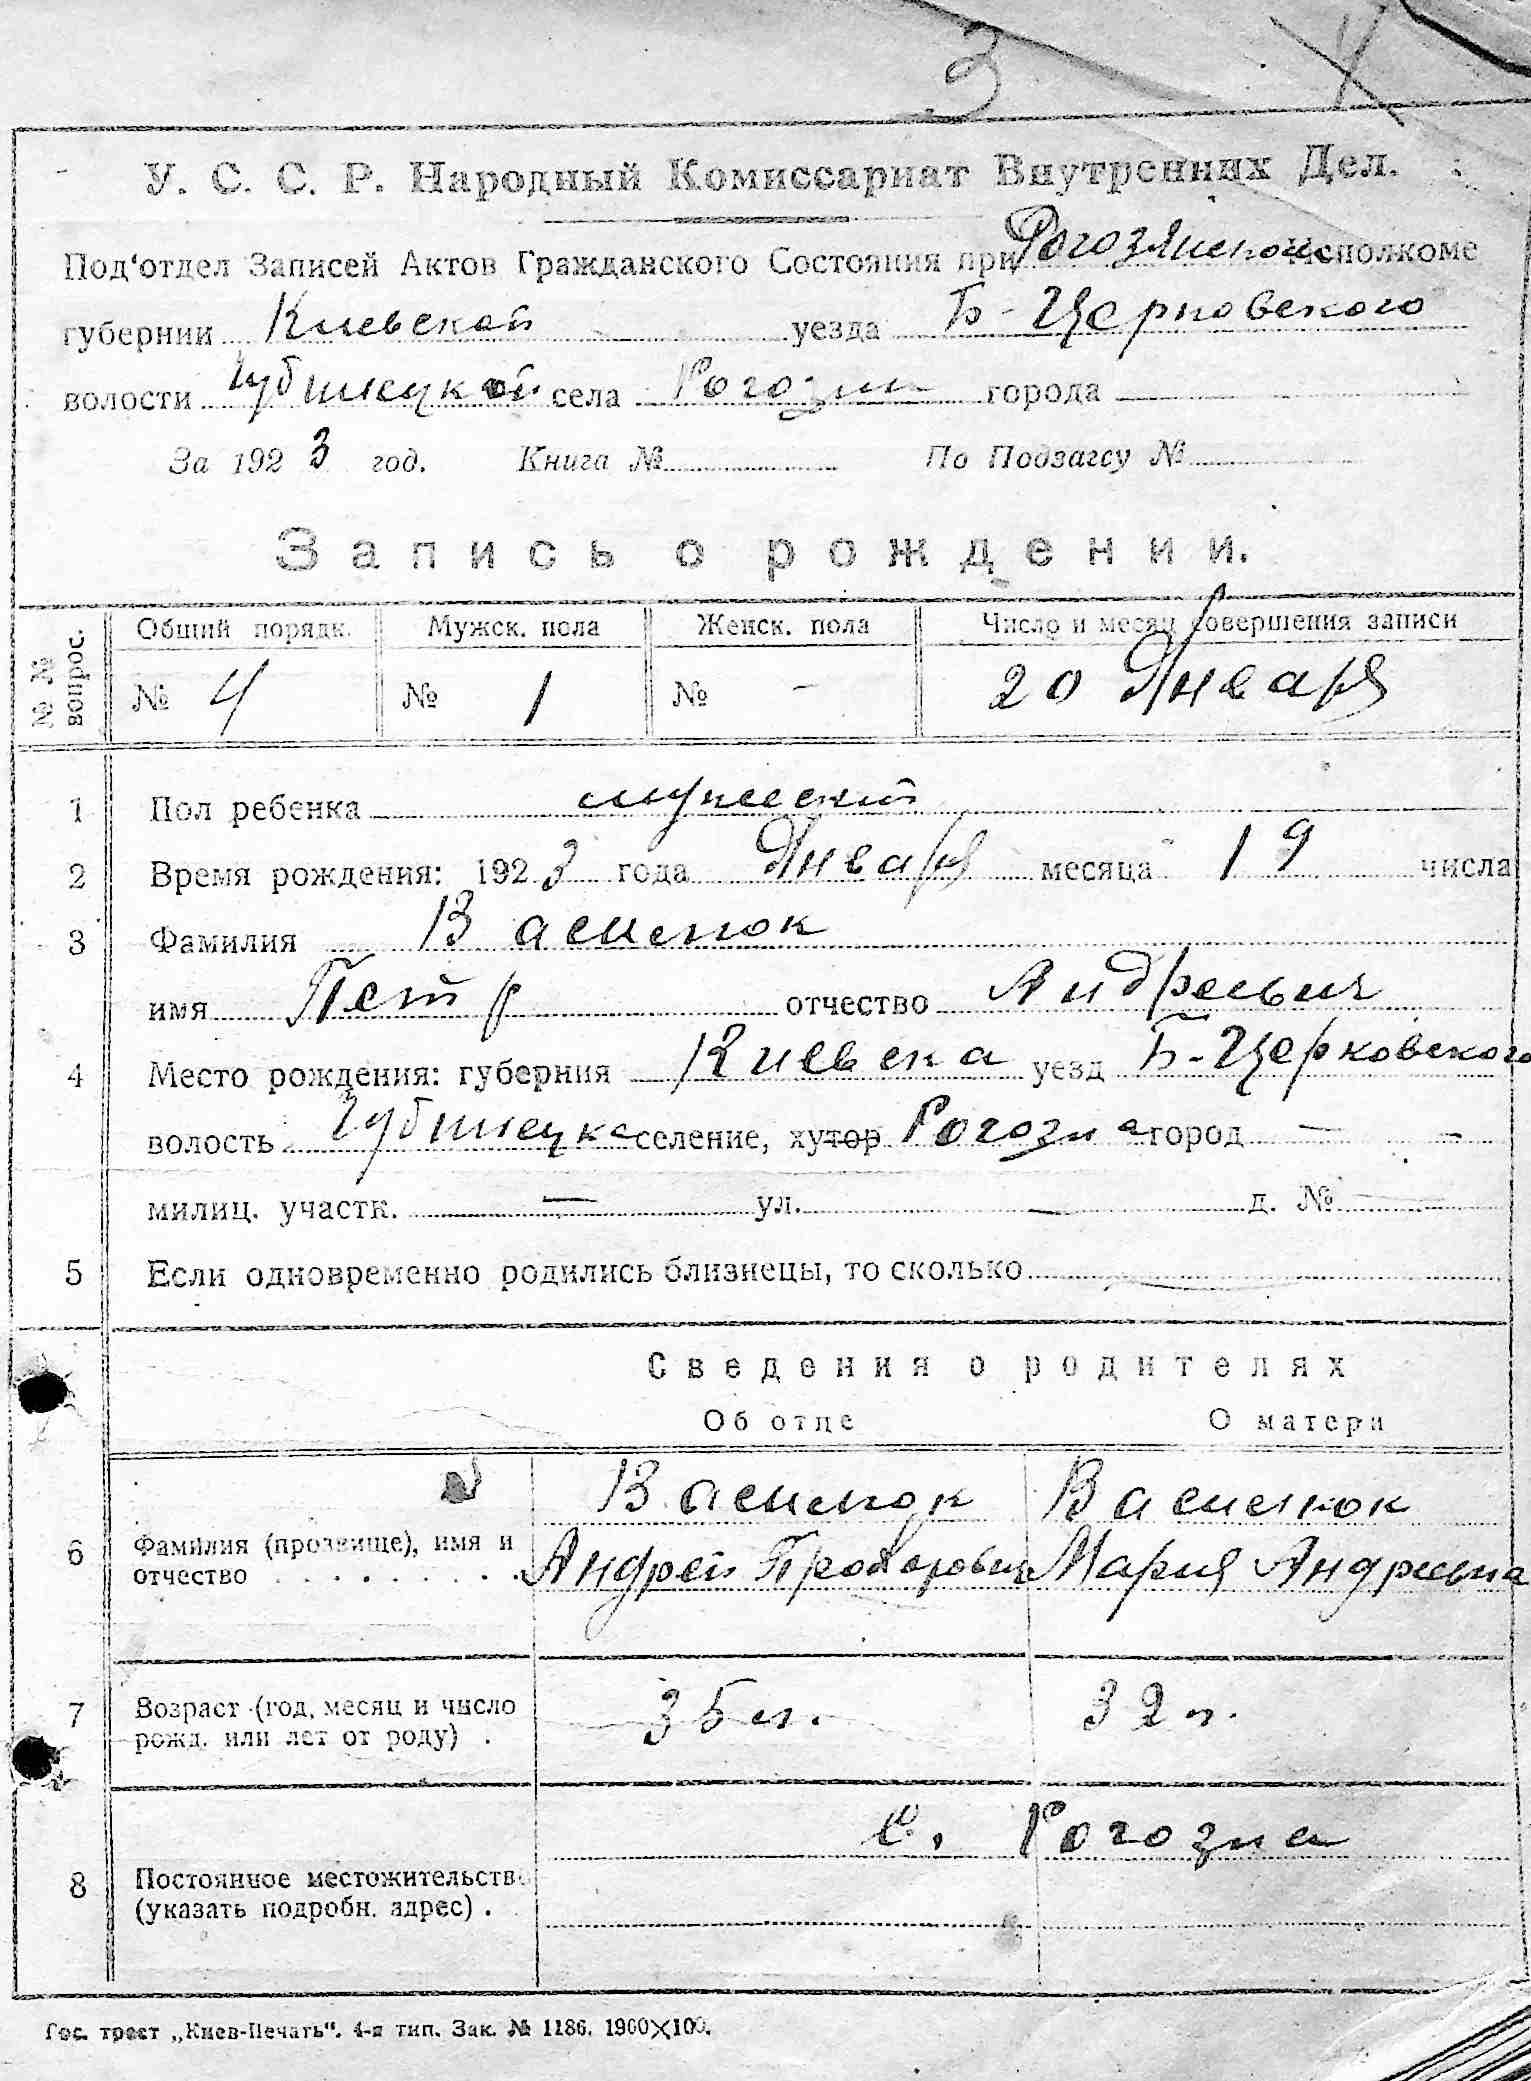 3
У. С. С. Р. Народный Комиссариат Внутренних Дел.
Под'отдел Записей Актов Гражданского Состояния при Рогозянском Исполкоме
губернии Киевской уезда Б-Церковского
волости села Рогозни города
За 1923 год. Книга № По Подзагсу №
Запись о рождении.
№№ вопрос. Общий порядк. Мужск. пола Женск. пола Число и месяц совершения записи
№ 4 № 1 № - 20 Января
1 Пол ребенка мужеский
2 Время рождения: 1923 года Января месяца 19 числа
3 Фамилия Васшенок
имя Петр отчество Андреевич
4 Место рождения: губерния Киевска уезд Б-Церковского
волость селение, хутор Рогозна город — —
милиц. участк. — ул. — д. № —
5 Если одновременно родились близнецы, то сколько
Сведения о родителях
Об отце О матери
6 Фамилия (прозвище), имя и отчество
Андрей Прохорович Мария Андреевна
7 Возраст (год, месяц и число рожд. или лет от роду) . 35 л. 32 л.
8 Постоянное местожительство (указать подробн. адрес) . с. Рогозна
Гос. трест „Киев-Печать". 4-я тип. Зак. № 1186. 1900×100.